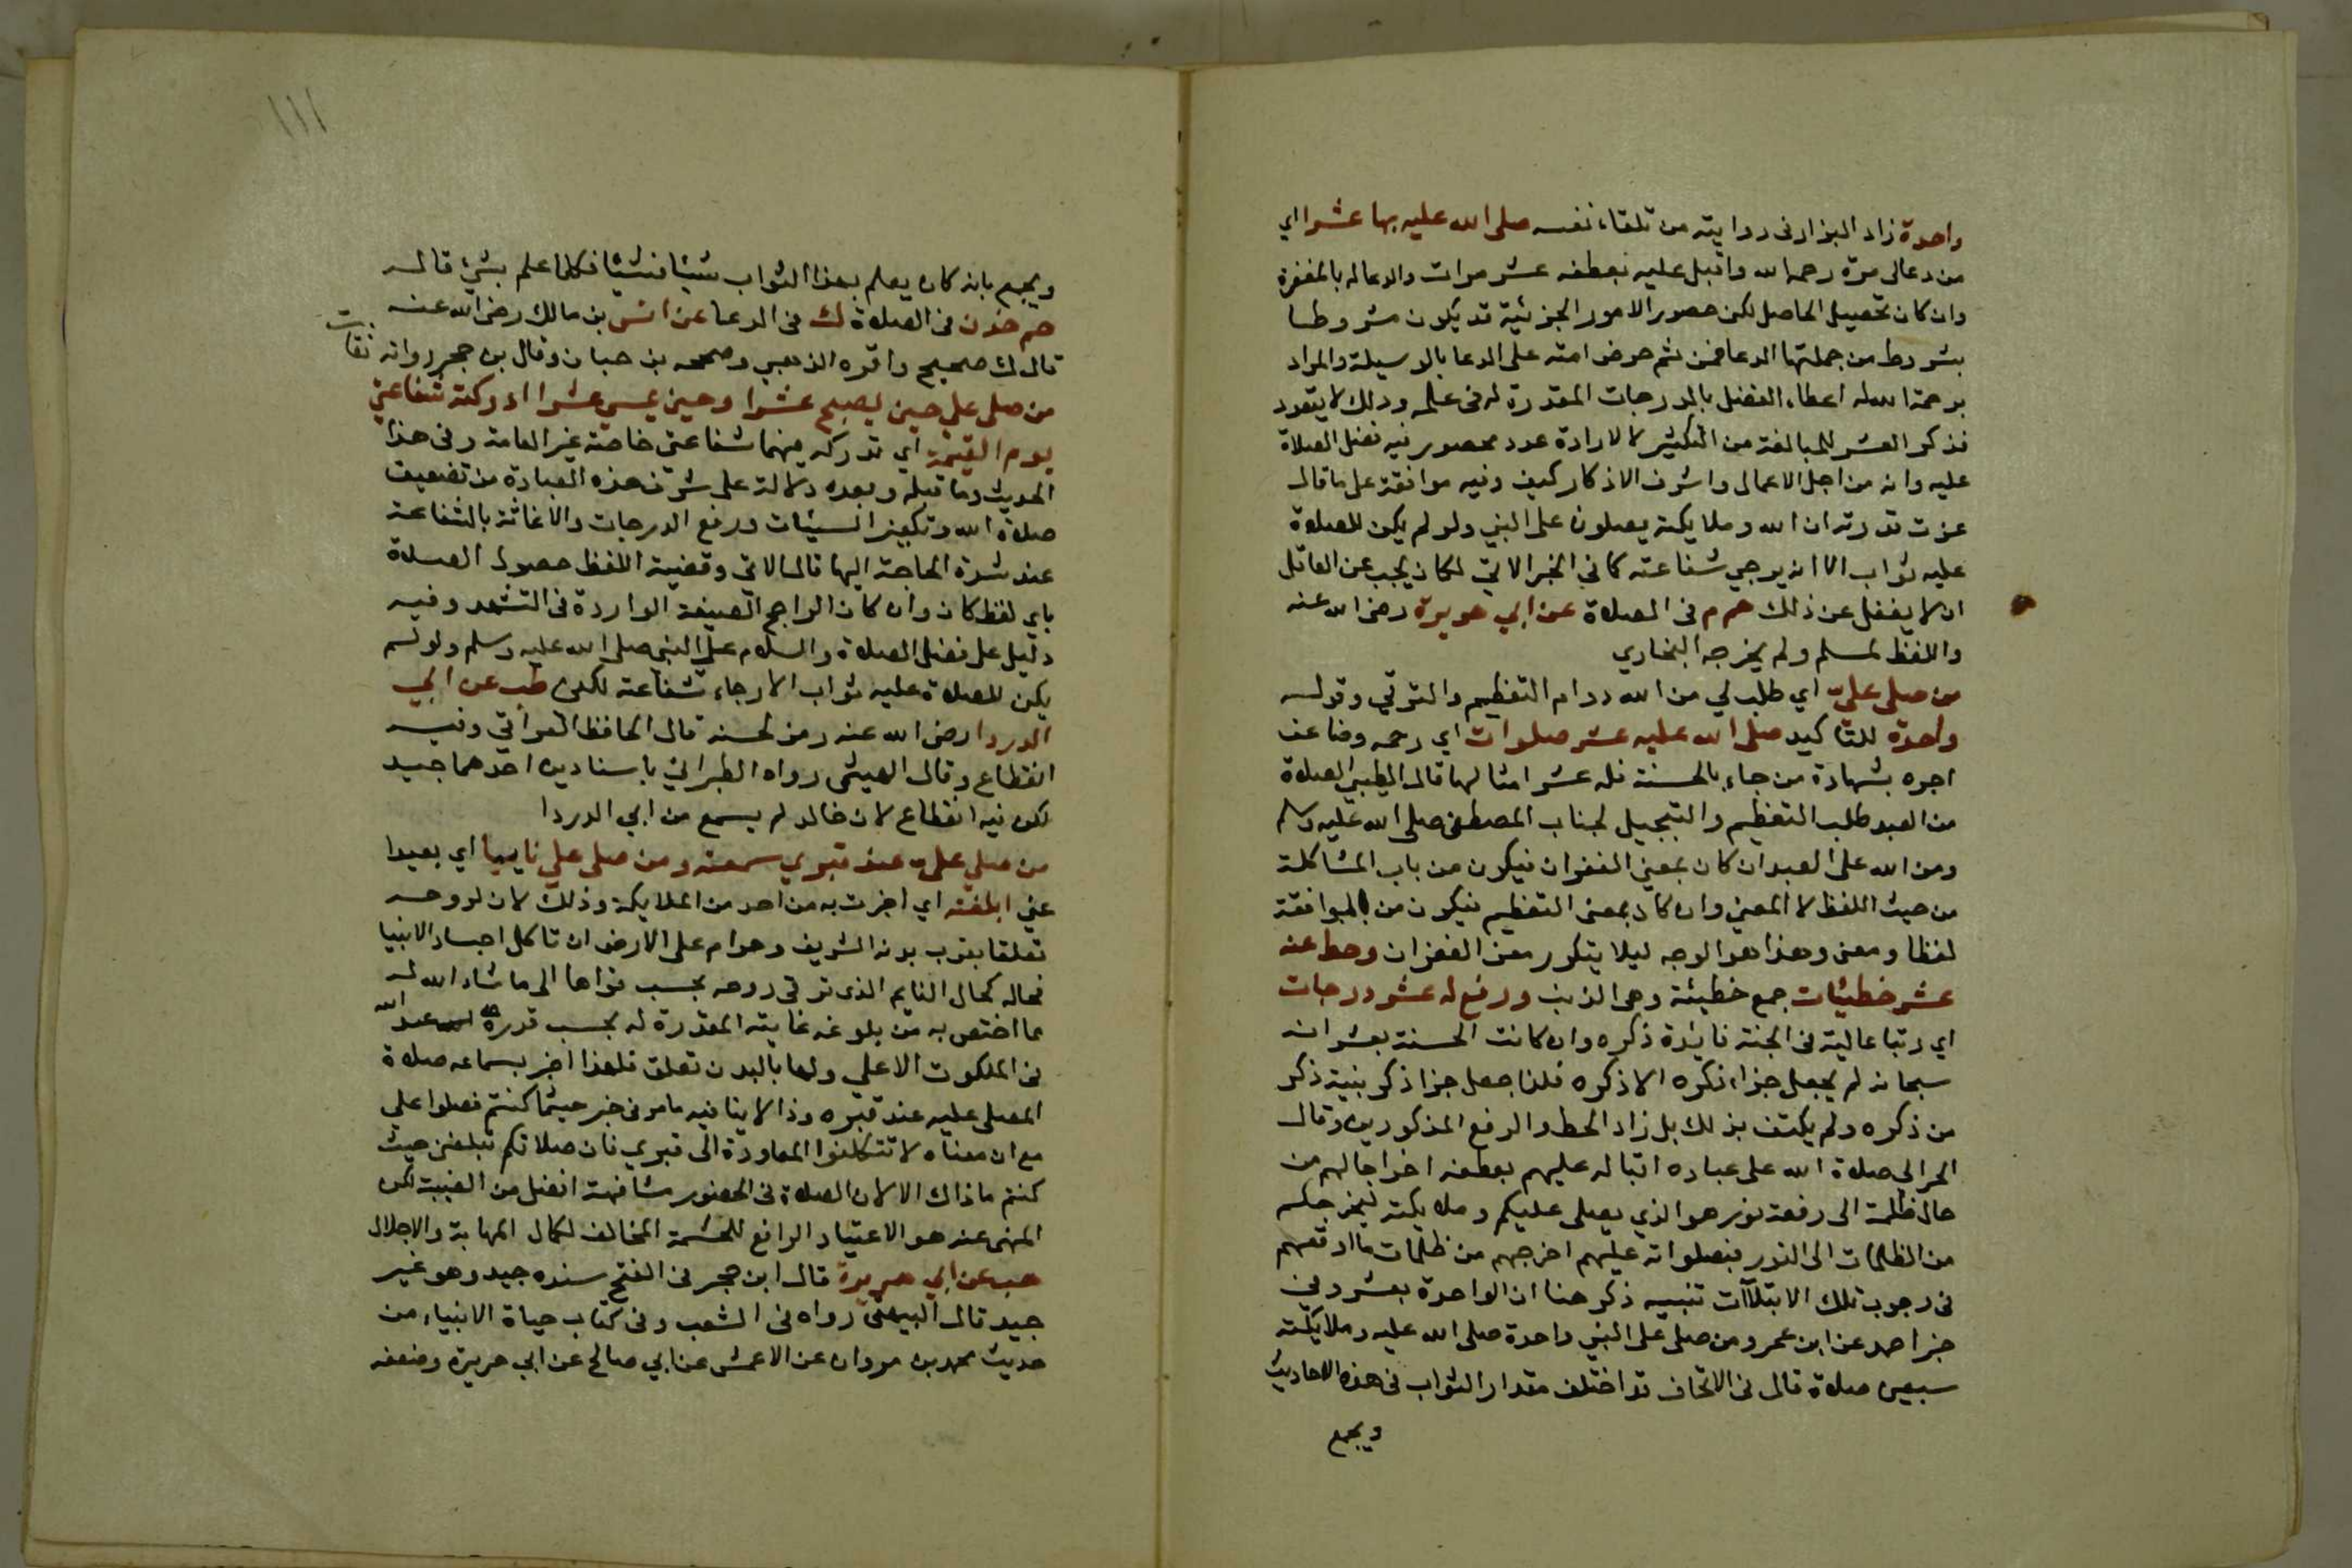 واحدة زاد البزار فى روايته من تلقاء نفسه صلى الله عليه بها عشرا اي
من دعالى مرة رحمه الله واقبل عليه بعطفه عشر مرات والدعا له بالمغفرة
وان كان تحصيل الحاصل لكن حصور الامور الجزئية قد يكون مشروطا
بشروط من جملتها الدعا فمن ثم حرض امته على الدعا بالوسيلة والمراد
برحمة الله له اعطاء الفضل بالدرجات المقدرة له فى علمه وذلك لا يتعدد
فذكر العشر للمبالغة من التكثير لا لارادة عدد محصور فيه فضل الصلاة
عليه وانه من اجل الاعمال واشرف الاذكار كيف وفيه موافقة على ما قال
عزت قدرته ان الله وملايكته يصلون على النبي ولو لم يكن للصلاة
عليه ثواب الا انه يرجي شفاعته كما في الخبر الاتي لكان يجب عن العاقل
ان لا يغفل عن ذلك حم م فى الصلاة عن ابي هريرة رضى الله عنه
واللفظ لمسلم ولم يخرجه البخاري
من صلى علي اي طلب لي من الله دوام التعظيم والترقي وقوله
واحدة للتاكيد صلى الله عليه عشر صلوات اي رحمه وضاعف
اجره بشهادة من جاء بالحسنة فله عشر امثالها قال الطيبي الصلاة
من العبد طلب التعظيم والتبجيل لجناب المصطفى صلى الله عليه وسلم
ومن الله على العبد ان كان بمعنى الغفران فيكون من باب المشاكلة
من حيث اللفظ لا المعنى وان كان بمعنى التعظيم فيكون من الموافقة
لفظا ومعنى وهذا هو الوجه ليلا يتكرر معنى الغفران وحط عنه
عشر خطيئات جمع خطيئة وهى الذنب ورفع له عشر درجات
اي رتبا عالية فى الجنة فايدة ذكره وان كانت الحسنة بعشر انه
سبحانه لم يجعل جزاء ذكره الا ذكره فلذا جعل جزا ذكر نبيه ذكر
من ذكره ولم يكتف بذلك بل زاد الحط والرفع المذكورين وقال
الحرالى صلاة الله على عباده اقباله عليهم بعطفه اخراجا لهم من
حال ظلمة الى رفعة نور هو الذي يصلى عليكم وملايكته ليخرجكم
من الظلمات الى النور فبصلواته عليهم اخرجهم من ظلمات ما اوقعهم
فى وجوب تلك الابتلاآت تنبيه ذكر هنا ان الواحدة بعشر وفي
خبر احمد عن ابن عمرو من صلى على النبي واحدة صلى الله عليه وملايكته
سبعين صلاة قال فى الاتحاف قد اختلف مقدار الثواب فى هذه الاحاديث
ويجمع
١١١
ويجمع بانه كان يعلم بهذا الثواب شيئا فشيئا فكلما علم بشئ قاله
حم خد ن فى الصلاة ك فى الدعا عن انس بن مالك رضى الله عنه
قال ك صحيح واقره الذهبي وصححه بن حبان وقال بن حجر رواته ثقات
من صلى علي حين يصبح عشرا وحين يمسي عشرا ادركته شفاعتي
يوم القيمة اي تدركه فيهما شفاعتى خاصة غير العامة وفى هذا
الحديث وما قبله وبعده دلالة على شرف هذه العبادة من تضعيف
صلاة الله وتكفير السيئات ورفع الدرجات والاغاثة بالشفاعة
عند شدة الحاجة اليها قال الابي وقضية اللفظ حصول الصلاة
باي لفظ كان وان كان الراجح الصيغة الواردة فى التشهد وفيه
دليل على فضل الصلاة والسلام على النبي صلى الله عليه وسلم ولو لم
يكن للصلاة عليه ثواب الا رجاء شفاعته لكفى طب عن ابي
الدردا رضى الله عنه رمز لحسنه قال الحافظ العراقي وفيه
انقطاع وقال الهيثمى رواه الطبراني باسنادين احدهما جيد
لكن فيه انقطاع لان خالد لم يسمع من ابي الدردا
من صلى علي عند قبري سمعته ومن صلى علي نايبا اي بعيدا
عني ابلغته اي اخبرت به من احد من الملايكة وذلك لان لروحه
تعلقا بقرب بدنه الشريف وحرام على الارض ان تاكل اجساد الانبيا
فحاله كحال النايم الذى ترقى روحه بحسب قواها الى ما شاء الله له
مما اختص به من بلوغه غايته المقدرة له بحسب قدره عند الله
فى الملكوت الاعلى ولها بالبدن تعلق فلهذا اخبر بسماعه صلاة
المصلى عليه عند قبره وذا لا ينافيه مامر فى خبر حيثما كنتم فصلوا على
مع ان معناه لا تتكلفوا المعاودة الى قبري فان صلاتكم تبلغنى حيث
كنتم ماذاك الا لان الصلاة فى الحضور مشافهة افضل من الغيبة لكن
المنهى عنه هو الاعتياد الرافع للحشمة المخالف لكمال المهابة والاجلال
هب عن ابي هريرة قال ابن حجر فى الفتح سنده جيد وهو غير
جيد قال البيهقى رواه فى الشعب وفى كتاب حياة الانبياء من
حديث محمد بن مروان عن الاعمش عن ابي صالح عن ابي هريرة وضعفه